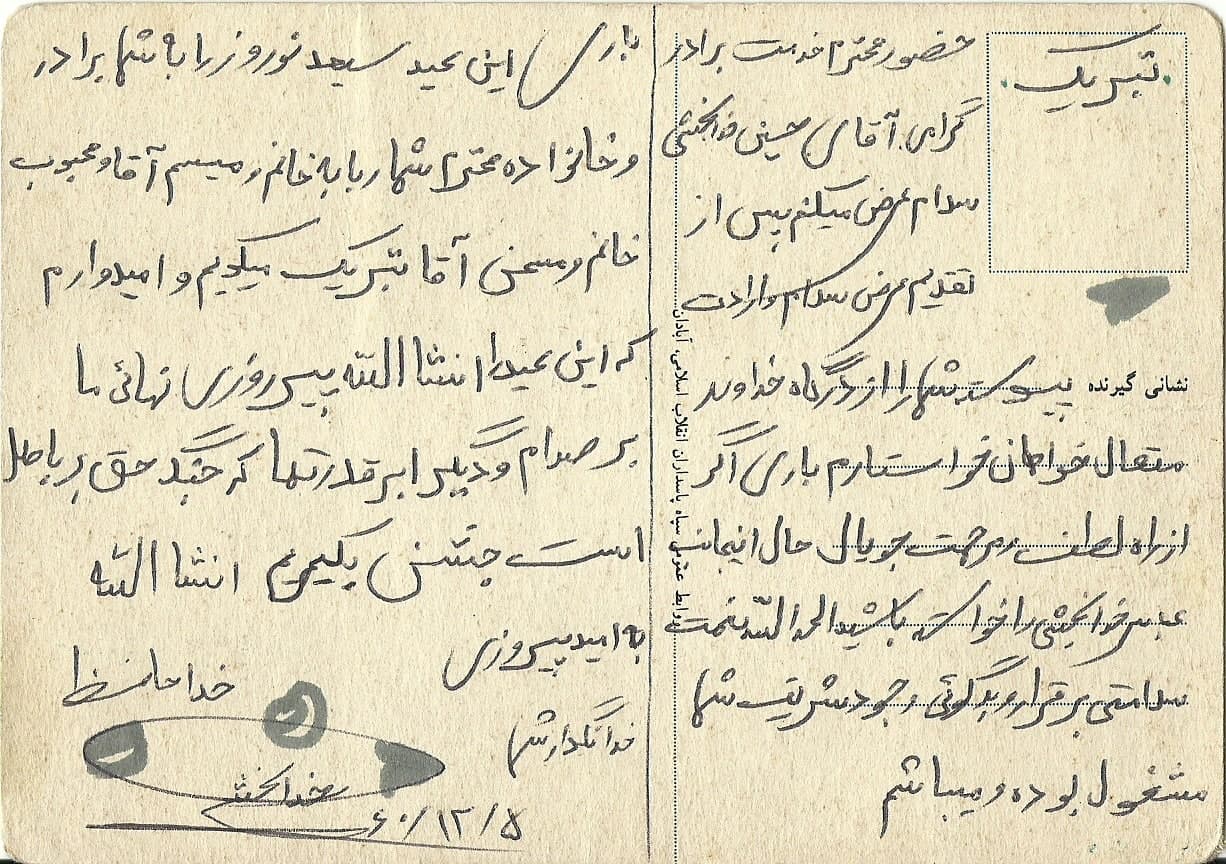 تبریک
حضور محترم خدمت برادر
گرامی آقای حسین خدابخشی
سلام عرض میکنم پس از
تقدیم عرض سلام و ارادت
نشانی گیرنده
پیوسته شما را از درگاه خداوند
متعال خواهان خواستارم باری اگر
از راه لطف و مرحمت جویای حال اینجانب
عباس خدابخشی را خواسته باشید الحمدالله نعمت
سلامتی برقرار و بدعاگوئی وجود شریف شما
مشغول بوده و میباشم
روابط عمومی سپاه پاسداران انقلاب اسلامی، آبادان
باری این عید سعید نوروز را به شما برادر
و خانواده محترم شما ربابه خانم و میسم آقا و محبوب
خانم و محسن آقا تبریک میگویم و امیدوارم
که این عید را انشاالله پیروزی نهائی ما
بر صدام و دیگر ابرقدرتها که جنگ حق بر باطل
است جشن بگیریم انشاالله
به امید پیروزی
خدانگهدار شما
خداحافظ
خدابخشی
۶۰/۱۲/۵